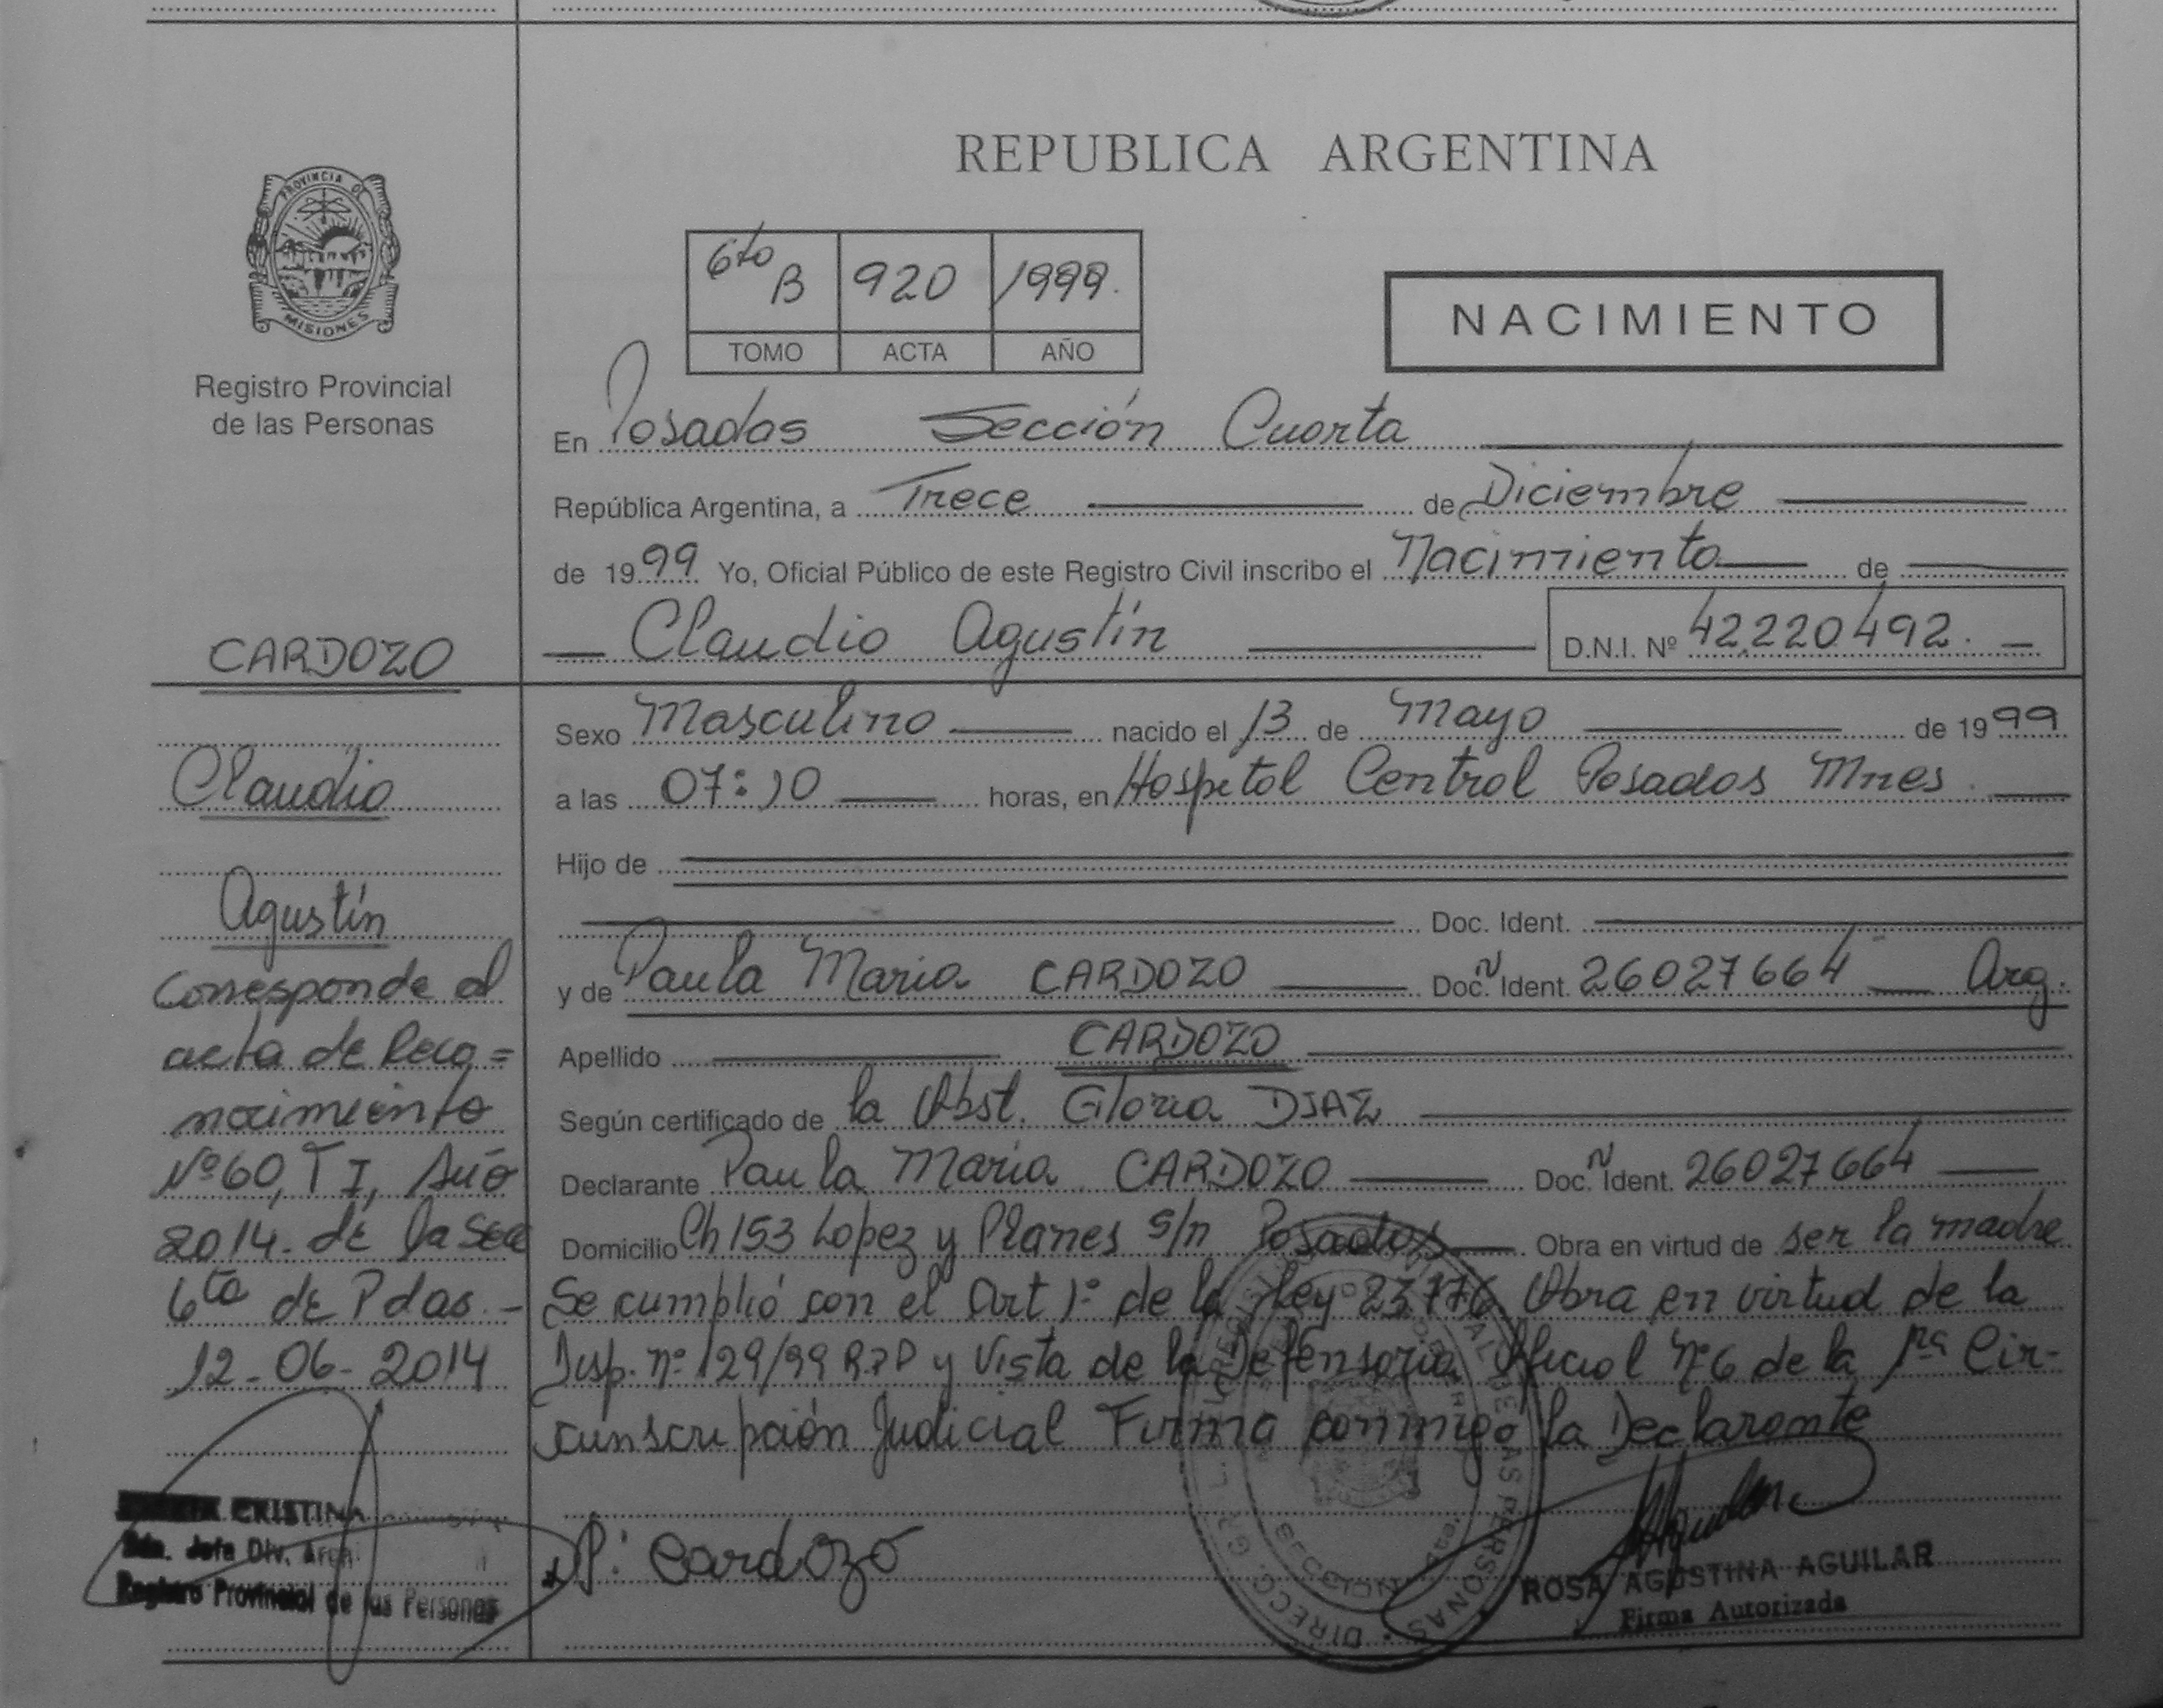 REPUBLICA ARGENTINA
PROVINCIA DE
MISIONES
Registro Provincial
de las Personas
6to B 920 1999.
TOMO ACTA AÑO
NACIMIENTO
En Posadas Sección Cuarta
República Argentina, a Trece de Diciembre
de 1999 Yo, Oficial Público de este Registro Civil inscribo el Nacimiento de
Claudio Agustín D.N.I. Nº 42.220492.
CARDOZO
Claudio
Agustín
Corresponde al
acta de Reco=
nocimiento
Nº 60, T I, Año
2014. de la Sec
6ta de Pdas.-
12-06-2014
CRISTINA
Jefa Div. Arch
Registro Provincial de las Personas
Sexo Masculino nacido el 13 de Mayo de 1999
a las 07:10 horas, en Hospital Central Posadas Mnes.
Hijo de
Doc. Ident.
y de Paula Maria CARDOZO Doc. Nº Ident. 26027664 Arg.
Apellido CARDOZO
Según certificado de la Obst. Gloria DIAZ
Declarante Paula Maria CARDOZO Doc. Nº Ident. 26027664
Domicilio Ch 153 Lopez y Planes s/n Posadas. Obra en virtud de ser la madre
Se cumplió con el Art 1º de la Ley 23776. Obra en virtud de la
Disp. nº 129/99 R.P.P y Vista de la Defensoria Oficial Nº6 de la 1ra Cir-
cunscripción Judicial Firma conmigo la Declarante
P. Cardozo
ROSA AGUSTINA AGUILAR
Firma Autorizada